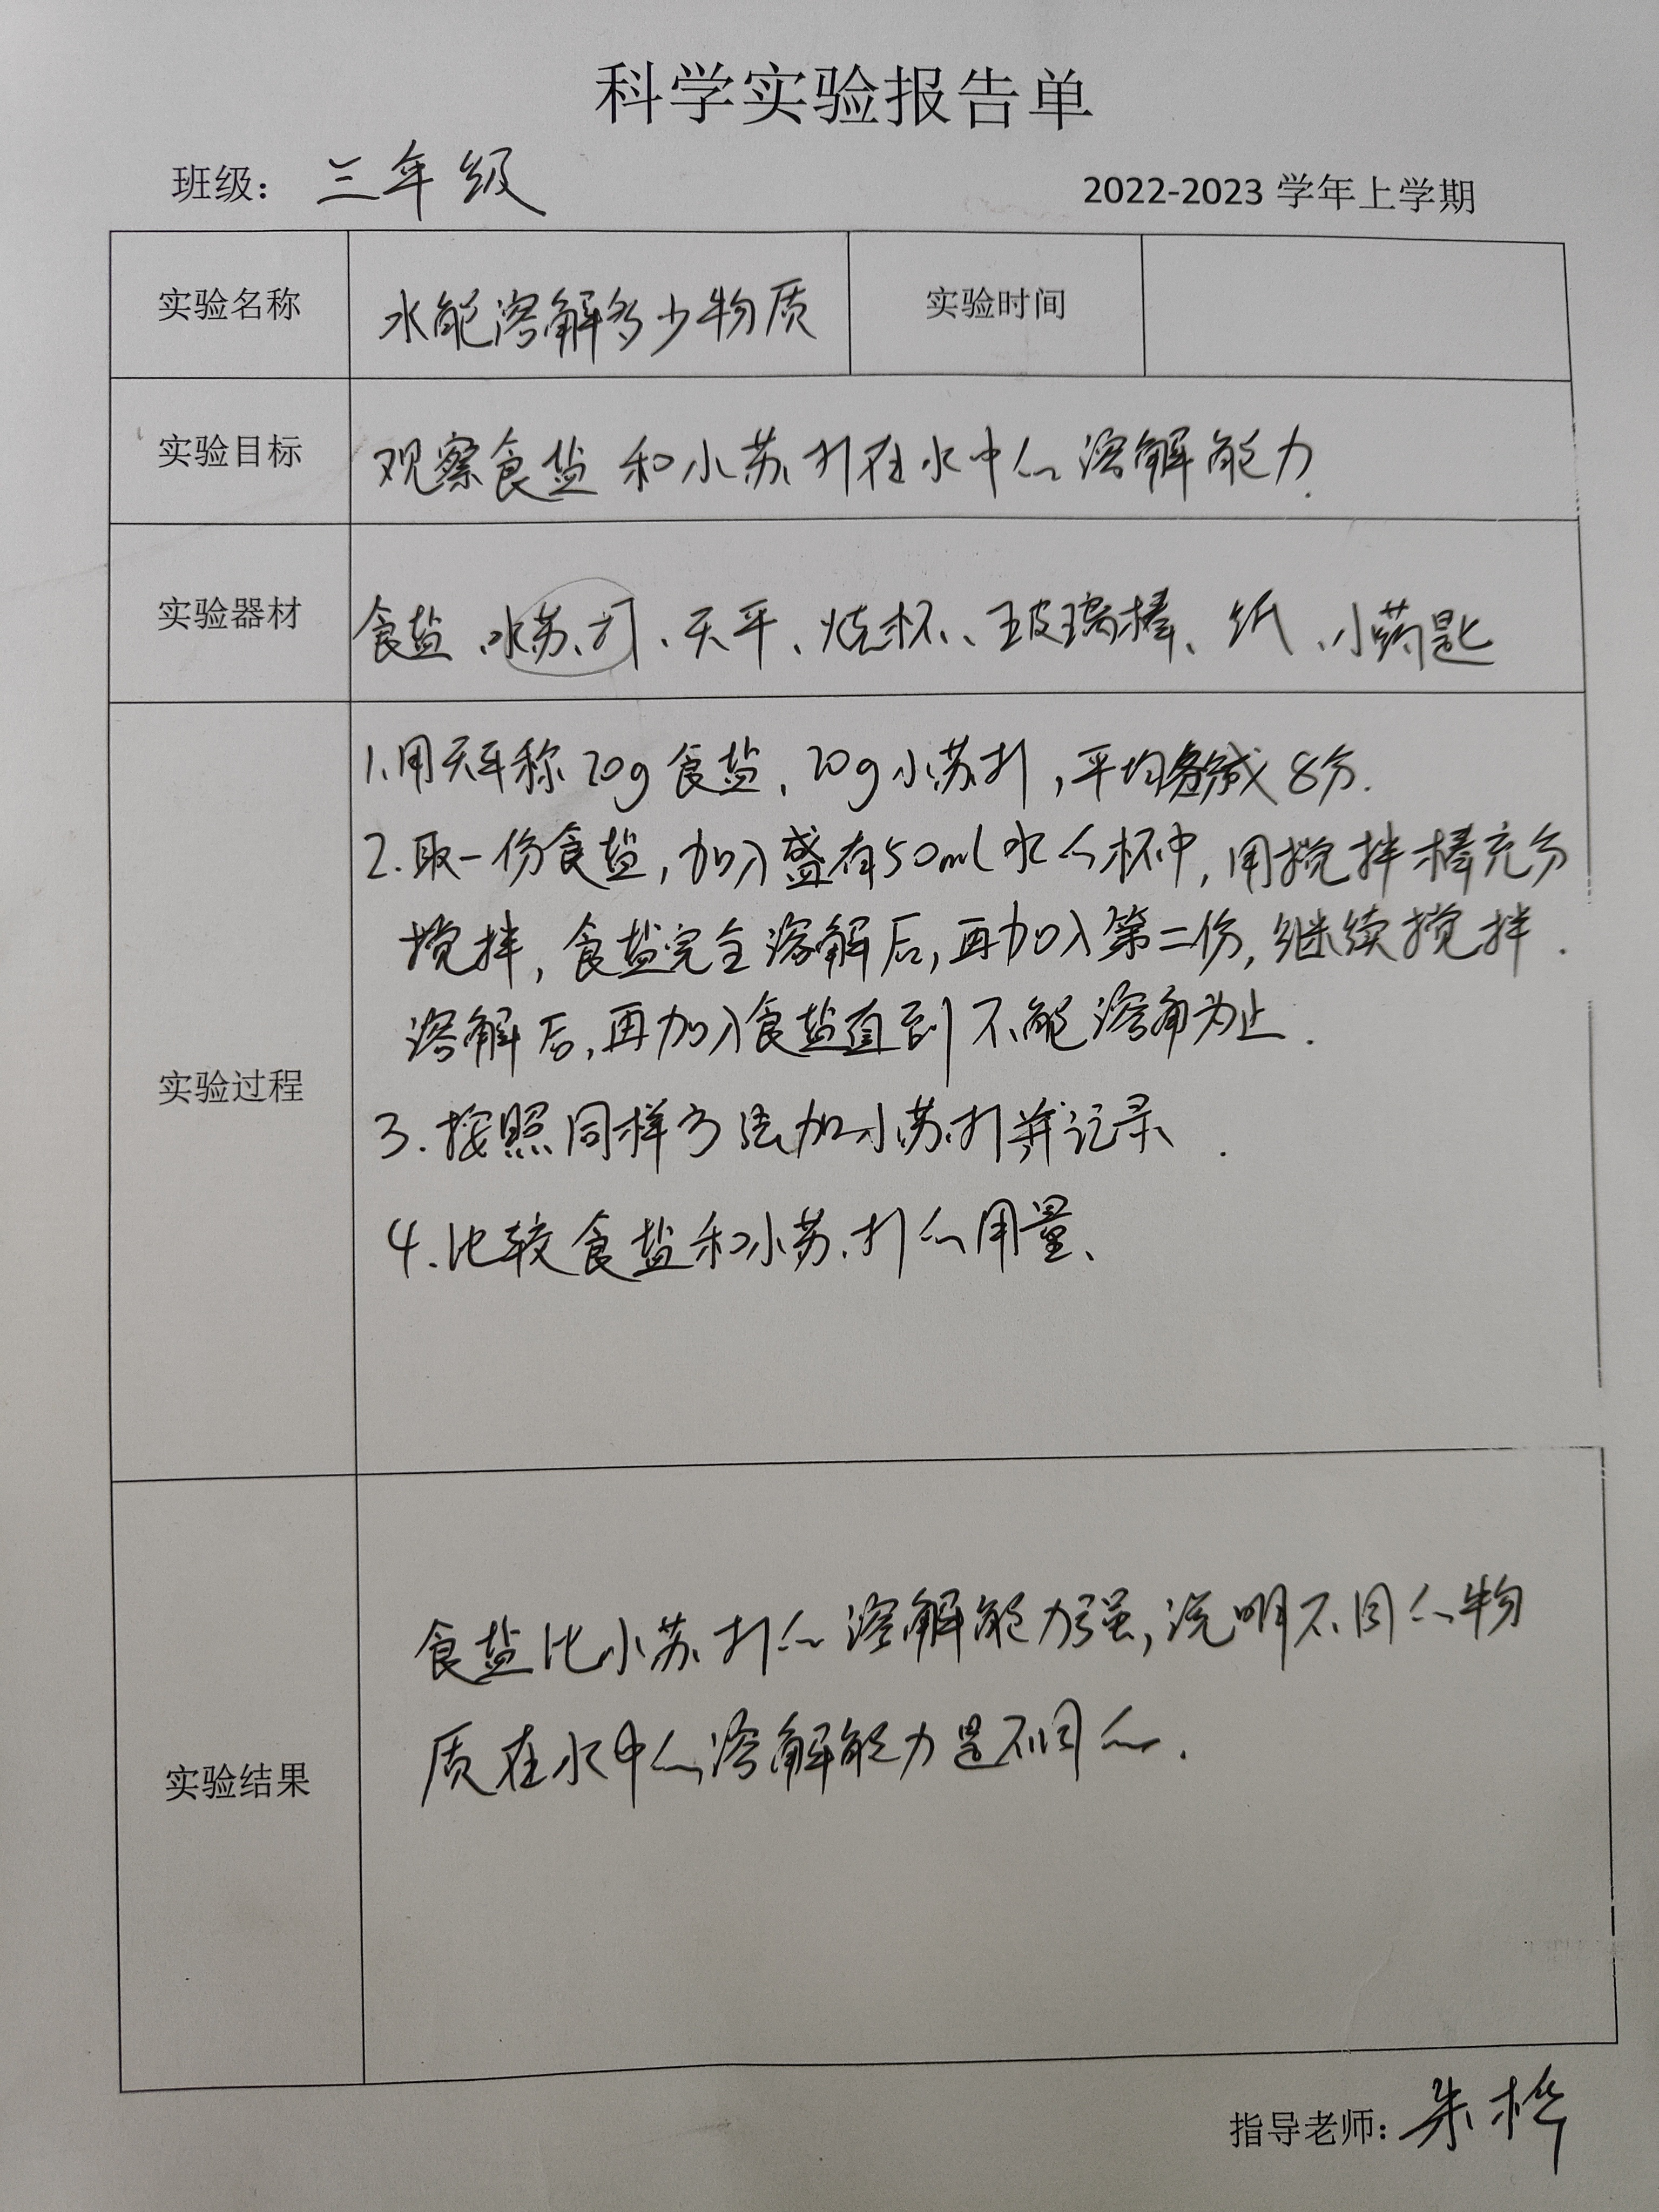 科学实验报告单
班级: 三年级 2022-2023 学年上学期
实验名称 水能溶解多少物质 实验时间
实验目标 观察食盐和小苏打在水中的溶解能力.
实验器材 食盐、小苏打、天平、烧杯、玻璃棒、纸、小药匙
实验过程
1.用天平称20g食盐、20g小苏打,平均各成8分.
2.取一份食盐,加入盛有50ml水的杯中,用搅拌棒充分
搅拌,食盐完全溶解后,再加入第二份,继续搅拌.
溶解后,再加入食盐直到不能溶解为止.
3.按照同样方法加小苏打并记录.
4.比较食盐和小苏打的用量、
实验结果
食盐比小苏打的溶解能力强,说明不同的物
质在水中的溶解能力是不同的.
指导老师: 朱桦